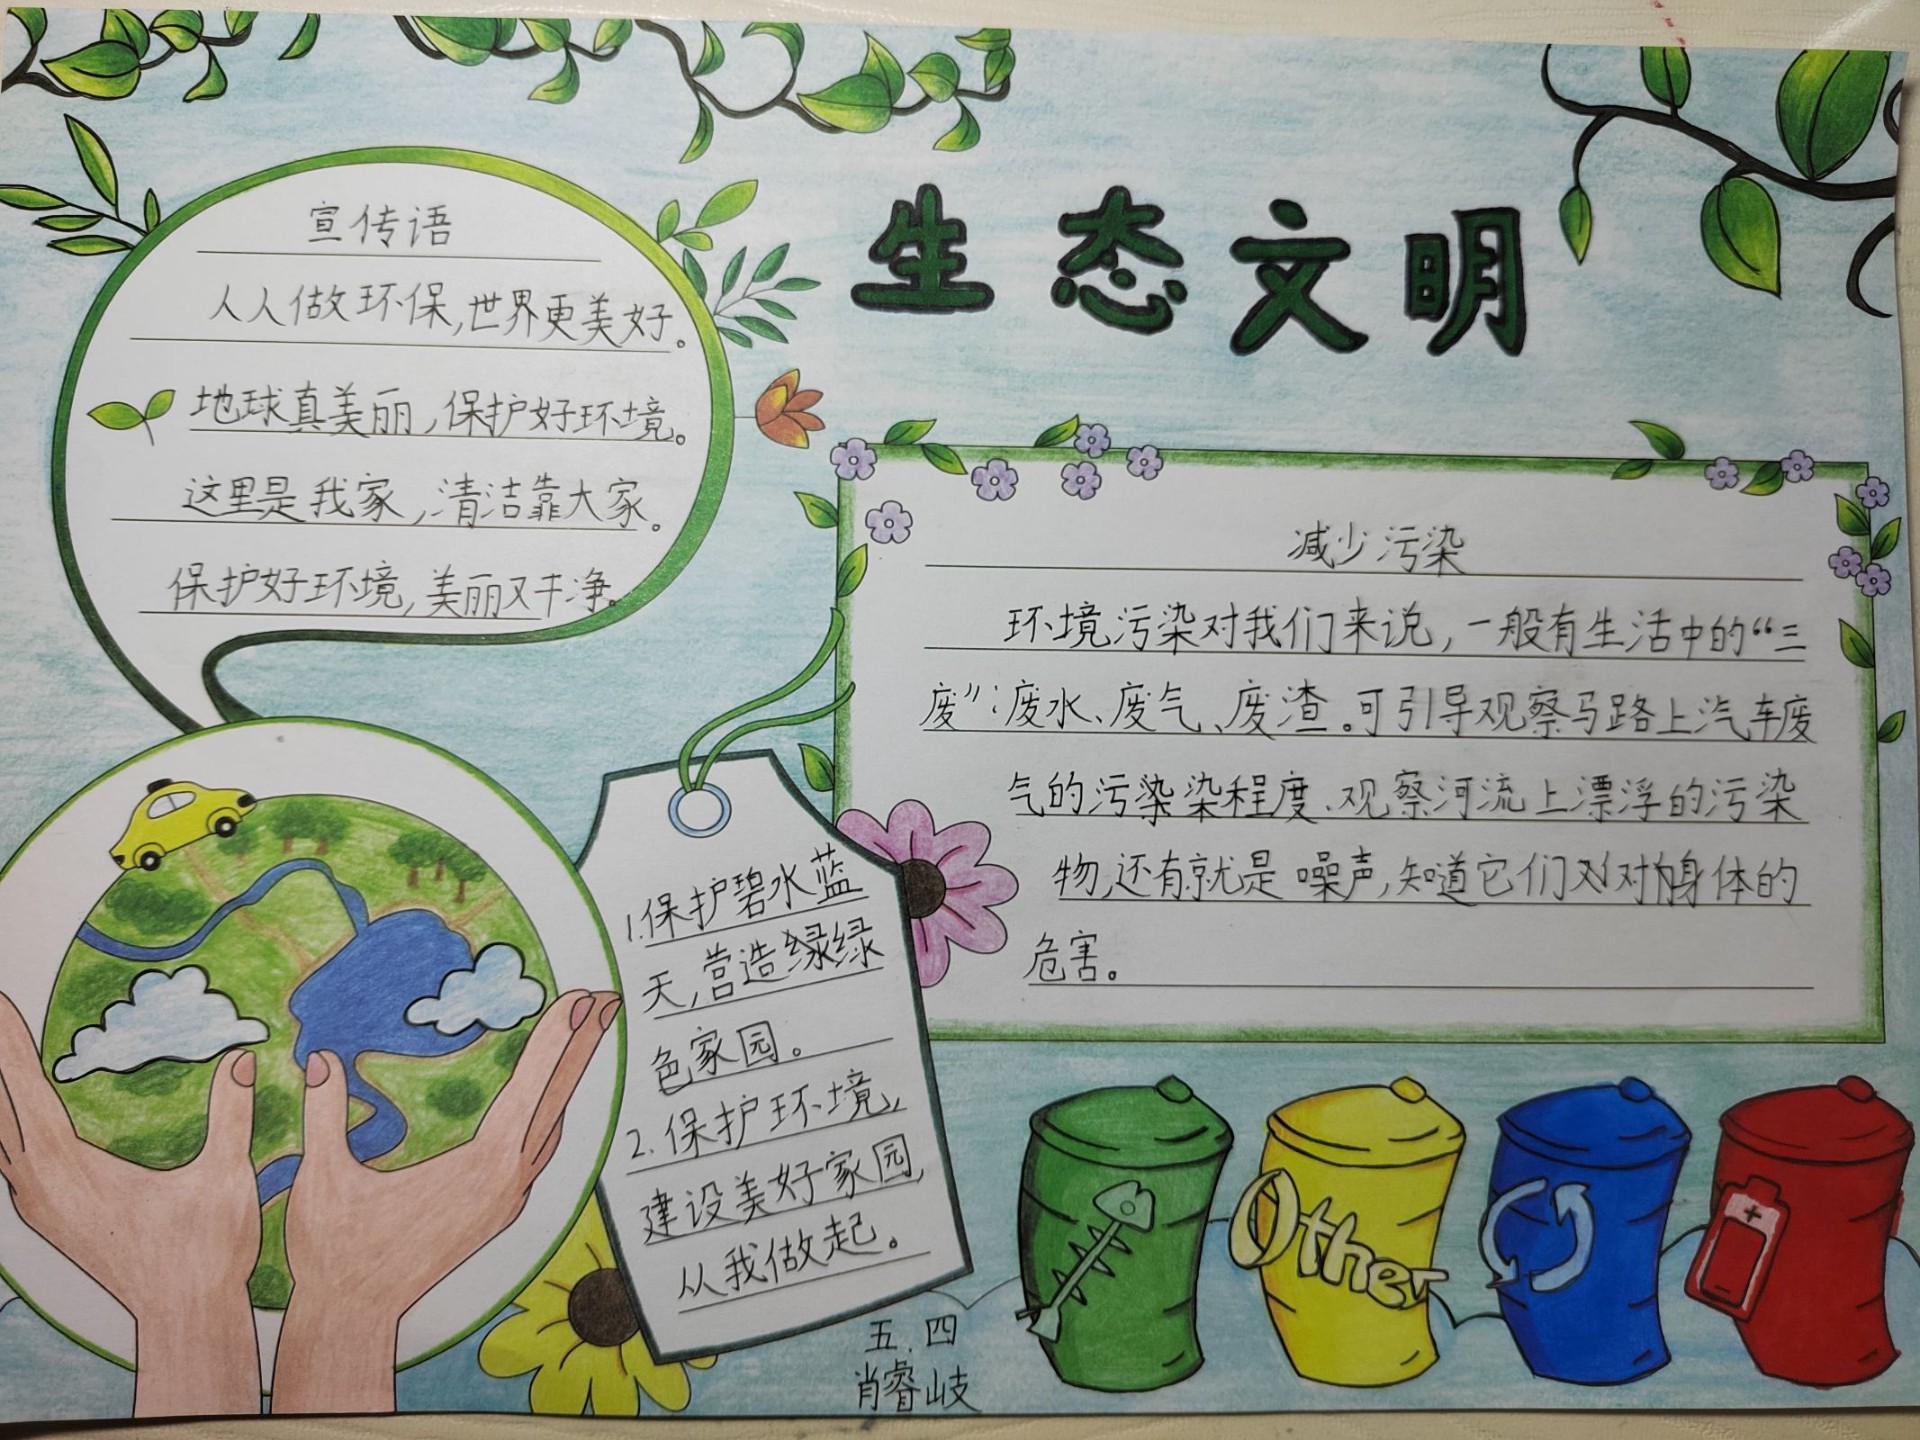 生态文明
宣传语
人人做环保,世界更美好。
地球真美丽,保护好环境。
这里是我家,清洁靠大家。
保护好环境,美丽又干净。
减少污染
环境污染对我们来说,一般有生活中的“三
废”:废水、废气、废渣。可引导观察马路上汽车废
气的污染染程度、观察河流上漂浮的污染
物,还有就是噪声,知道它们对身体的
危害。
1.保护碧水蓝
天,营造绿绿
色家园。
2.保护环境,
建设美好家园,
从我做起。
Other
五.四
肖睿岐